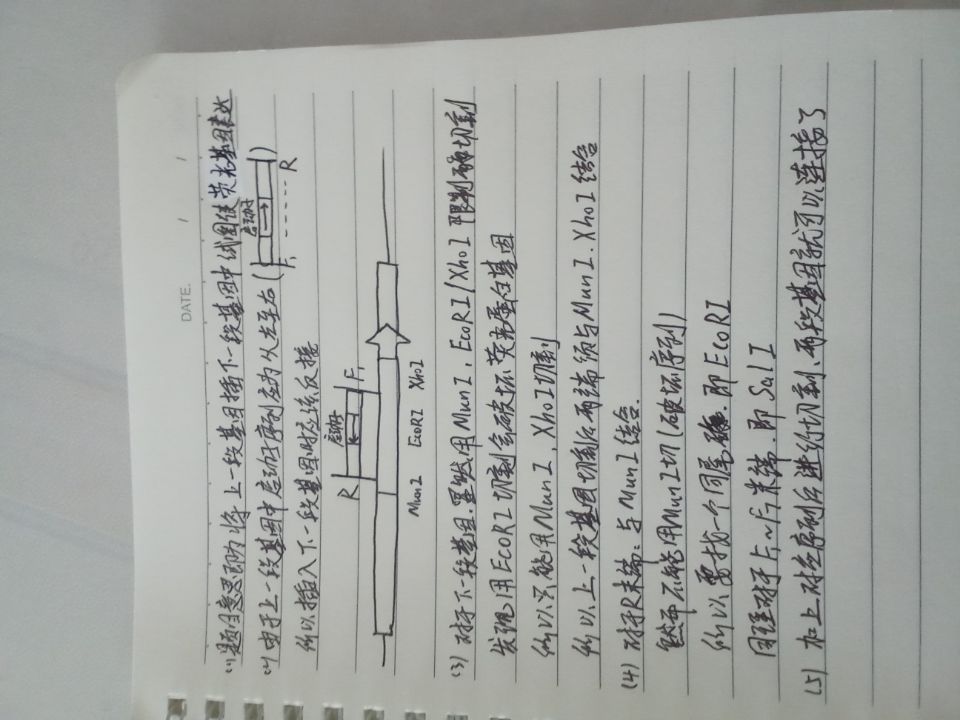 DATE. / /
(1) 题目意思即为将上一段基因插下一段基因中试图使荧光基因表达
(2) 由于上一段基因中启动子序列应为从左至右(
启动子
F₁ R )
所以插入下一段基因时应该反接
启动子
R F₁
Mun I EcoR I Xho I
(3) 对于下一段基因.显然用Mun I,EcoR I/Xho I 限制酶切割
发现用ECOR I切割会破坏荧光蛋白基因
所以只能用Mun I,Xho I切割
所以上一段基因切割后两端须与Mun I.Xho I结合
(4) 对于R末端:与Mun I结合.
然而不能用Mun I切(破坏序列)
所以要找一个同尾酶.即EcoR I
同理对于F₁~F₃末端.即Sal I
(5) 加上对应序列后进行切割、两段基因就可以连接了